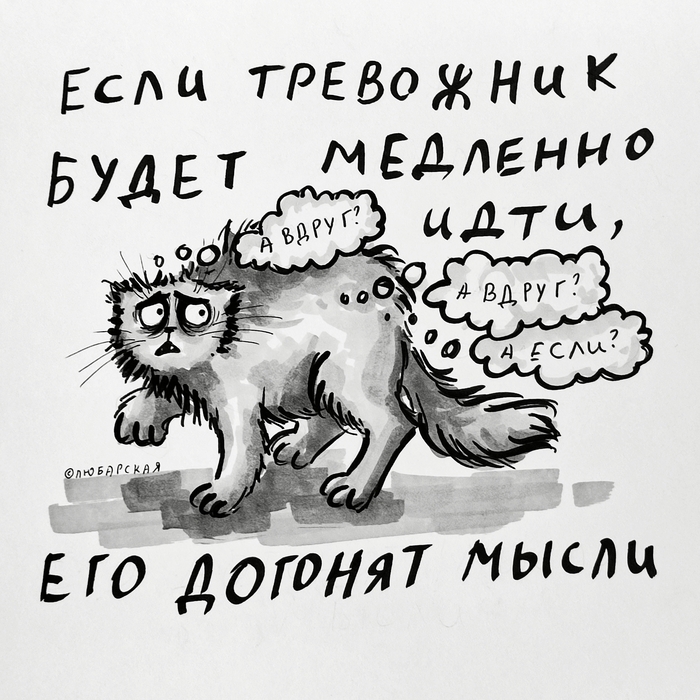 Если тревожник
будет медленно
идти,
А вдруг?
А вдруг?
А если?
©Любарская
Его догонят мысли